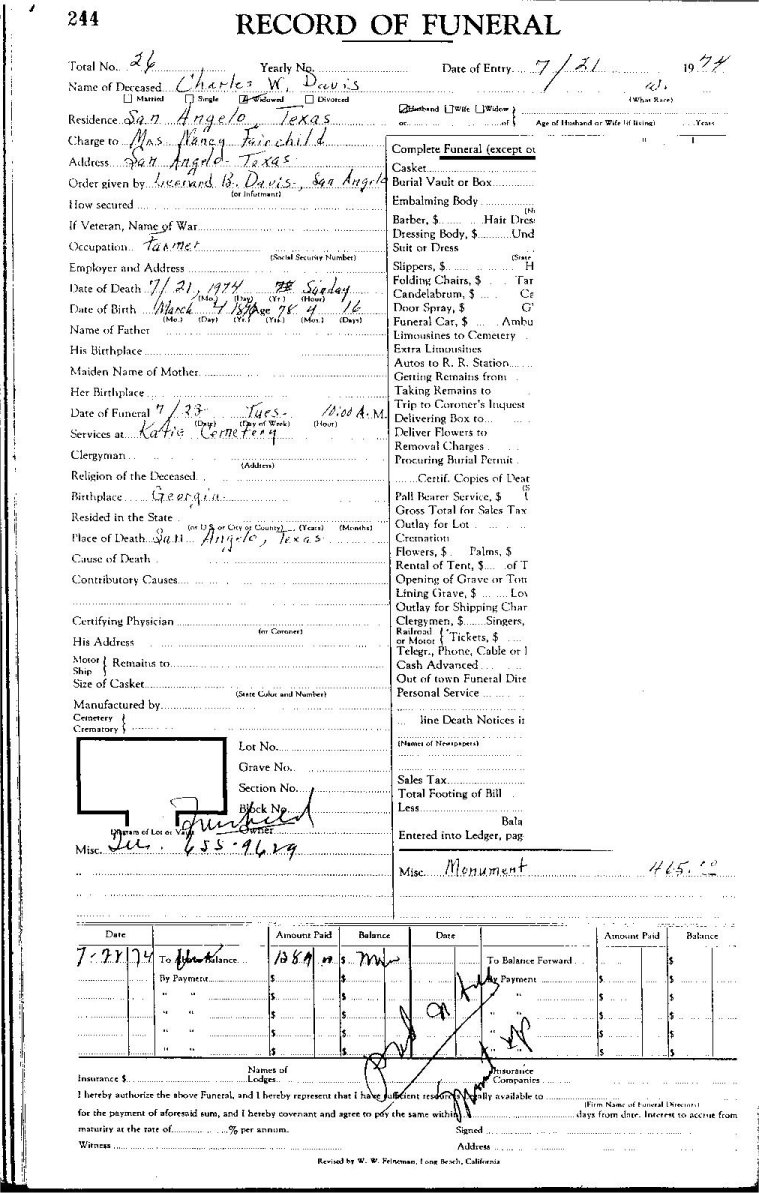 244
RECORD OF FUNERAL
Total No. 26 Yearly No. Date of Entry 7/21 1974
Name of Deceased Charles W. Davis W.
Married Single Widowed Divorced Husband Wife Widow (What Race)
Residence San Angelo, Texas or of Age of Husband or Wife (if living) Years
Charge to Mrs Nancy Fairchild " "
Address San Angelo - Texas
Order given by Leonard B. Davis, San Angelo
(or Informant)
How secured
If Veteran, Name of War
Occupation Farmer
(Social Security Number)
Employer and Address
Date of Death 7/21, 1974 Sunday
(Mo.) (Day) (Yr.) (Hour)
Date of Birth March 4 1896 Age 78 4 16
(Mo.) (Day) (Yr.) (Yrs.) (Mos.) (Days)
Name of Father
His Birthplace
Maiden Name of Mother
Her Birthplace
Date of Funeral 7/23 Tues- 10:00 A.M.
(Date) (Day of Week) (Hour)
Services at Cemetery
Clergyman
(Address)
Religion of the Deceased
Birthplace Georgia
Resided in the State
(or U.S. or City or County) (Years) (Months)
Place of Death San Angelo, Texas
Cause of Death
Contributory Causes
Certifying Physician
(or Coroner)
His Address
Motor Ship Remains to
Size of Casket
(State Color and Number)
Manufactured by
Cemetery
Crematory
Lot No.
Grave No.
Section No.
Block No.
Diagram of Lot or Vault Owner
Misc. 655-9629
Complete Funeral (except ou
Casket
Burial Vault or Box
Embalming Body
Barber, $ Hair Dres
Dressing Body, $ Und
Suit or Dress
(State
Slippers, $ H
Folding Chairs, $ Tar
Candelabrum, $ Ca
Door Spray, $ G
Funeral Car, $ Ambu
Limousines to Cemetery
Extra Limousines
Autos to R. R. Station
Getting Remains from
Taking Remains to
Trip to Coroner's Inquest
Delivering Box to
Deliver Flowers to
Removal Charges
Procuring Burial Permit
Certif. Copies of Deat
Pall Bearer Service, $
Gross Total for Sales Tax
Outlay for Lot
Cremation
Flowers, $ Palms, $
Rental of Tent, $ of T
Opening of Grave or Tom
Lining Grave, $ Lov
Outlay for Shipping Char
Clergymen, $ Singers,
Railroad or Motor Tickets, $
Telegr., Phone, Cable or
Cash Advanced
Out of town Funeral Dire
Personal Service
line Death Notices in
(Names of Newspapers)
Sales Tax
Total Footing of Bill
Less
Bala
Entered into Ledger, pag
Misc. Monument 465.00
Date Amount Paid Balance Date Amount Paid Balance
7-22 74 To Balance $ To Balance Forward $
By Payment $ $ By Payment $ $
" " $ $ " $ $
" " $ $ $ $
" " $ $ $ $
" " $ $ " $ $
Insurance $ Names of Lodges Insurance Companies
I hereby authorize the above Funeral, and I hereby represent that I have sufficient resources legally available to
(Firm Name of Funeral Directors)
for the payment of aforesaid sum, and I hereby covenant and agree to pay the same within days from date. Interest to accrue from
maturity at the rate of % per annum. Signed
Witness Address
Revised by W. W. Feineman, Long Beach, California